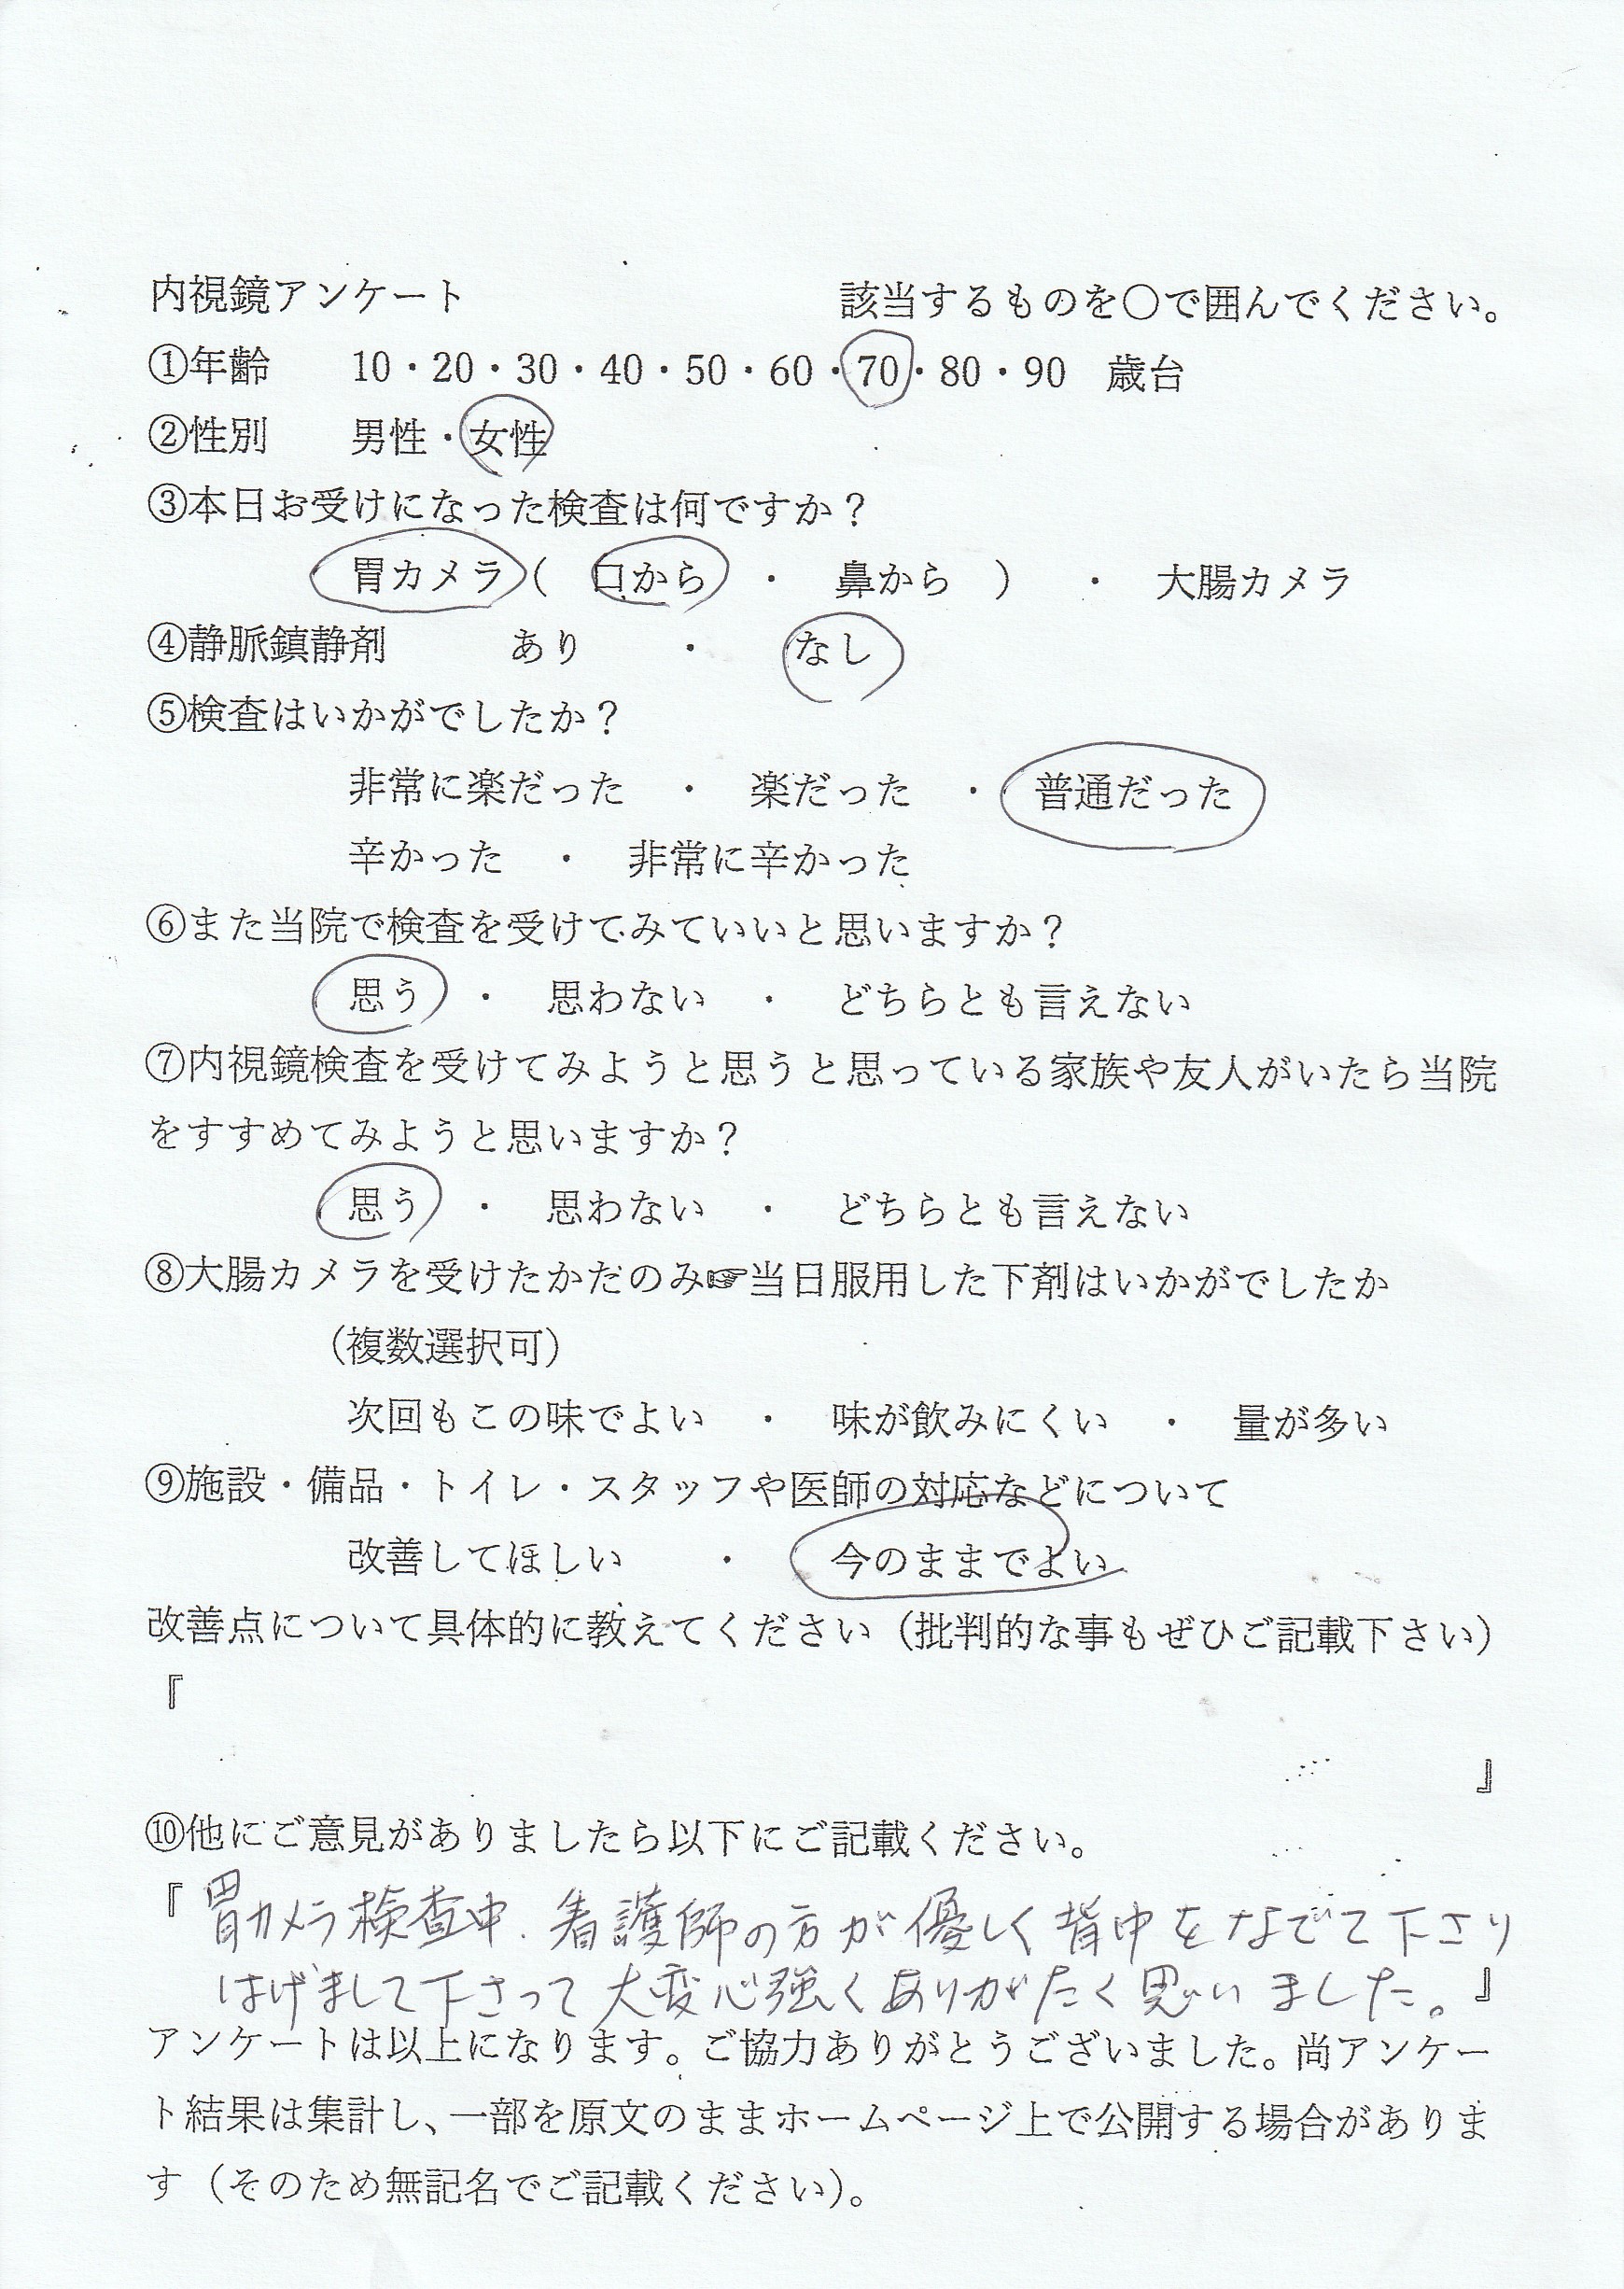 内視鏡アンケート　該当するものを〇で囲んでください。
①年齢　10・20・30・40・50・60・70・80・90　歳台
②性別　男性・女性
③本日お受けになった検査は何ですか？
胃カメラ（　口から　・　鼻から　）　・　大腸カメラ
④静脈鎮静剤　あり　・　なし
⑤検査はいかがでしたか？
非常に楽だった　・　楽だった　・　普通だった
辛かった　・　非常に辛かった
⑥また当院で検査を受けてみていいと思いますか？
思う　・　思わない　・　どちらとも言えない
⑦内視鏡検査を受けてみようと思うと思っている家族や友人がいたら当院
をすすめてみようと思いますか？
思う　・　思わない　・　どちらとも言えない
⑧大腸カメラを受けたかたのみ☞当日服用した下剤はいかがでしたか
（複数選択可）
次回もこの味でよい　・　味が飲みにくい　・　量が多い
⑨施設・備品・トイレ・スタッフや医師の対応などについて
改善してほしい　・　今のままでよい
改善点について具体的に教えてください（批判的な事もぜひご記載下さい）
『
』
⑩他にご意見がありましたら以下にご記載ください。
『胃カメラ検査中、看護師の方が優しく背中をなでて下さり
はげまして下さって大変心強くありがたく思いました。』
アンケートは以上になります。ご協力ありがとうございました。尚アンケー
ト結果は集計し、一部を原文のままホームページ上で公開する場合がありま
す（そのため無記名でご記載ください）。